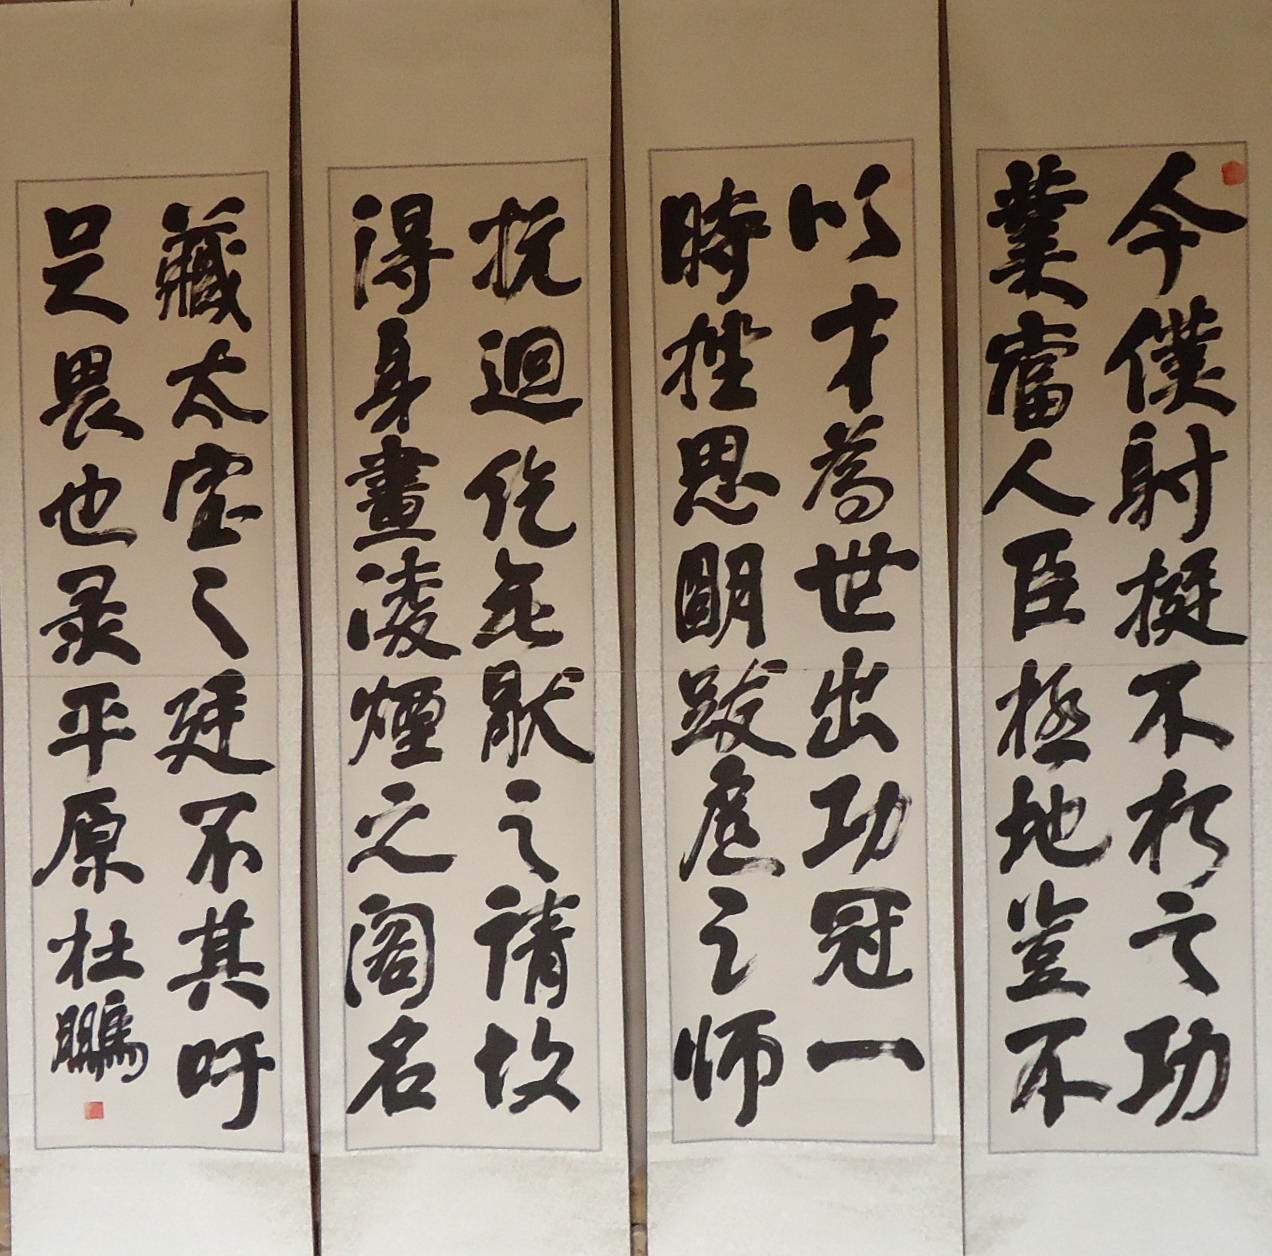 今僕射挺不朽之功
業當人臣極地豈不
以才為世出功冠一
時挫思明跋扈之师
抗迴紇無猒之請故
得身畫淩煙之阁名
藏太室之廷不其吁
足畏也录平原杜鵬